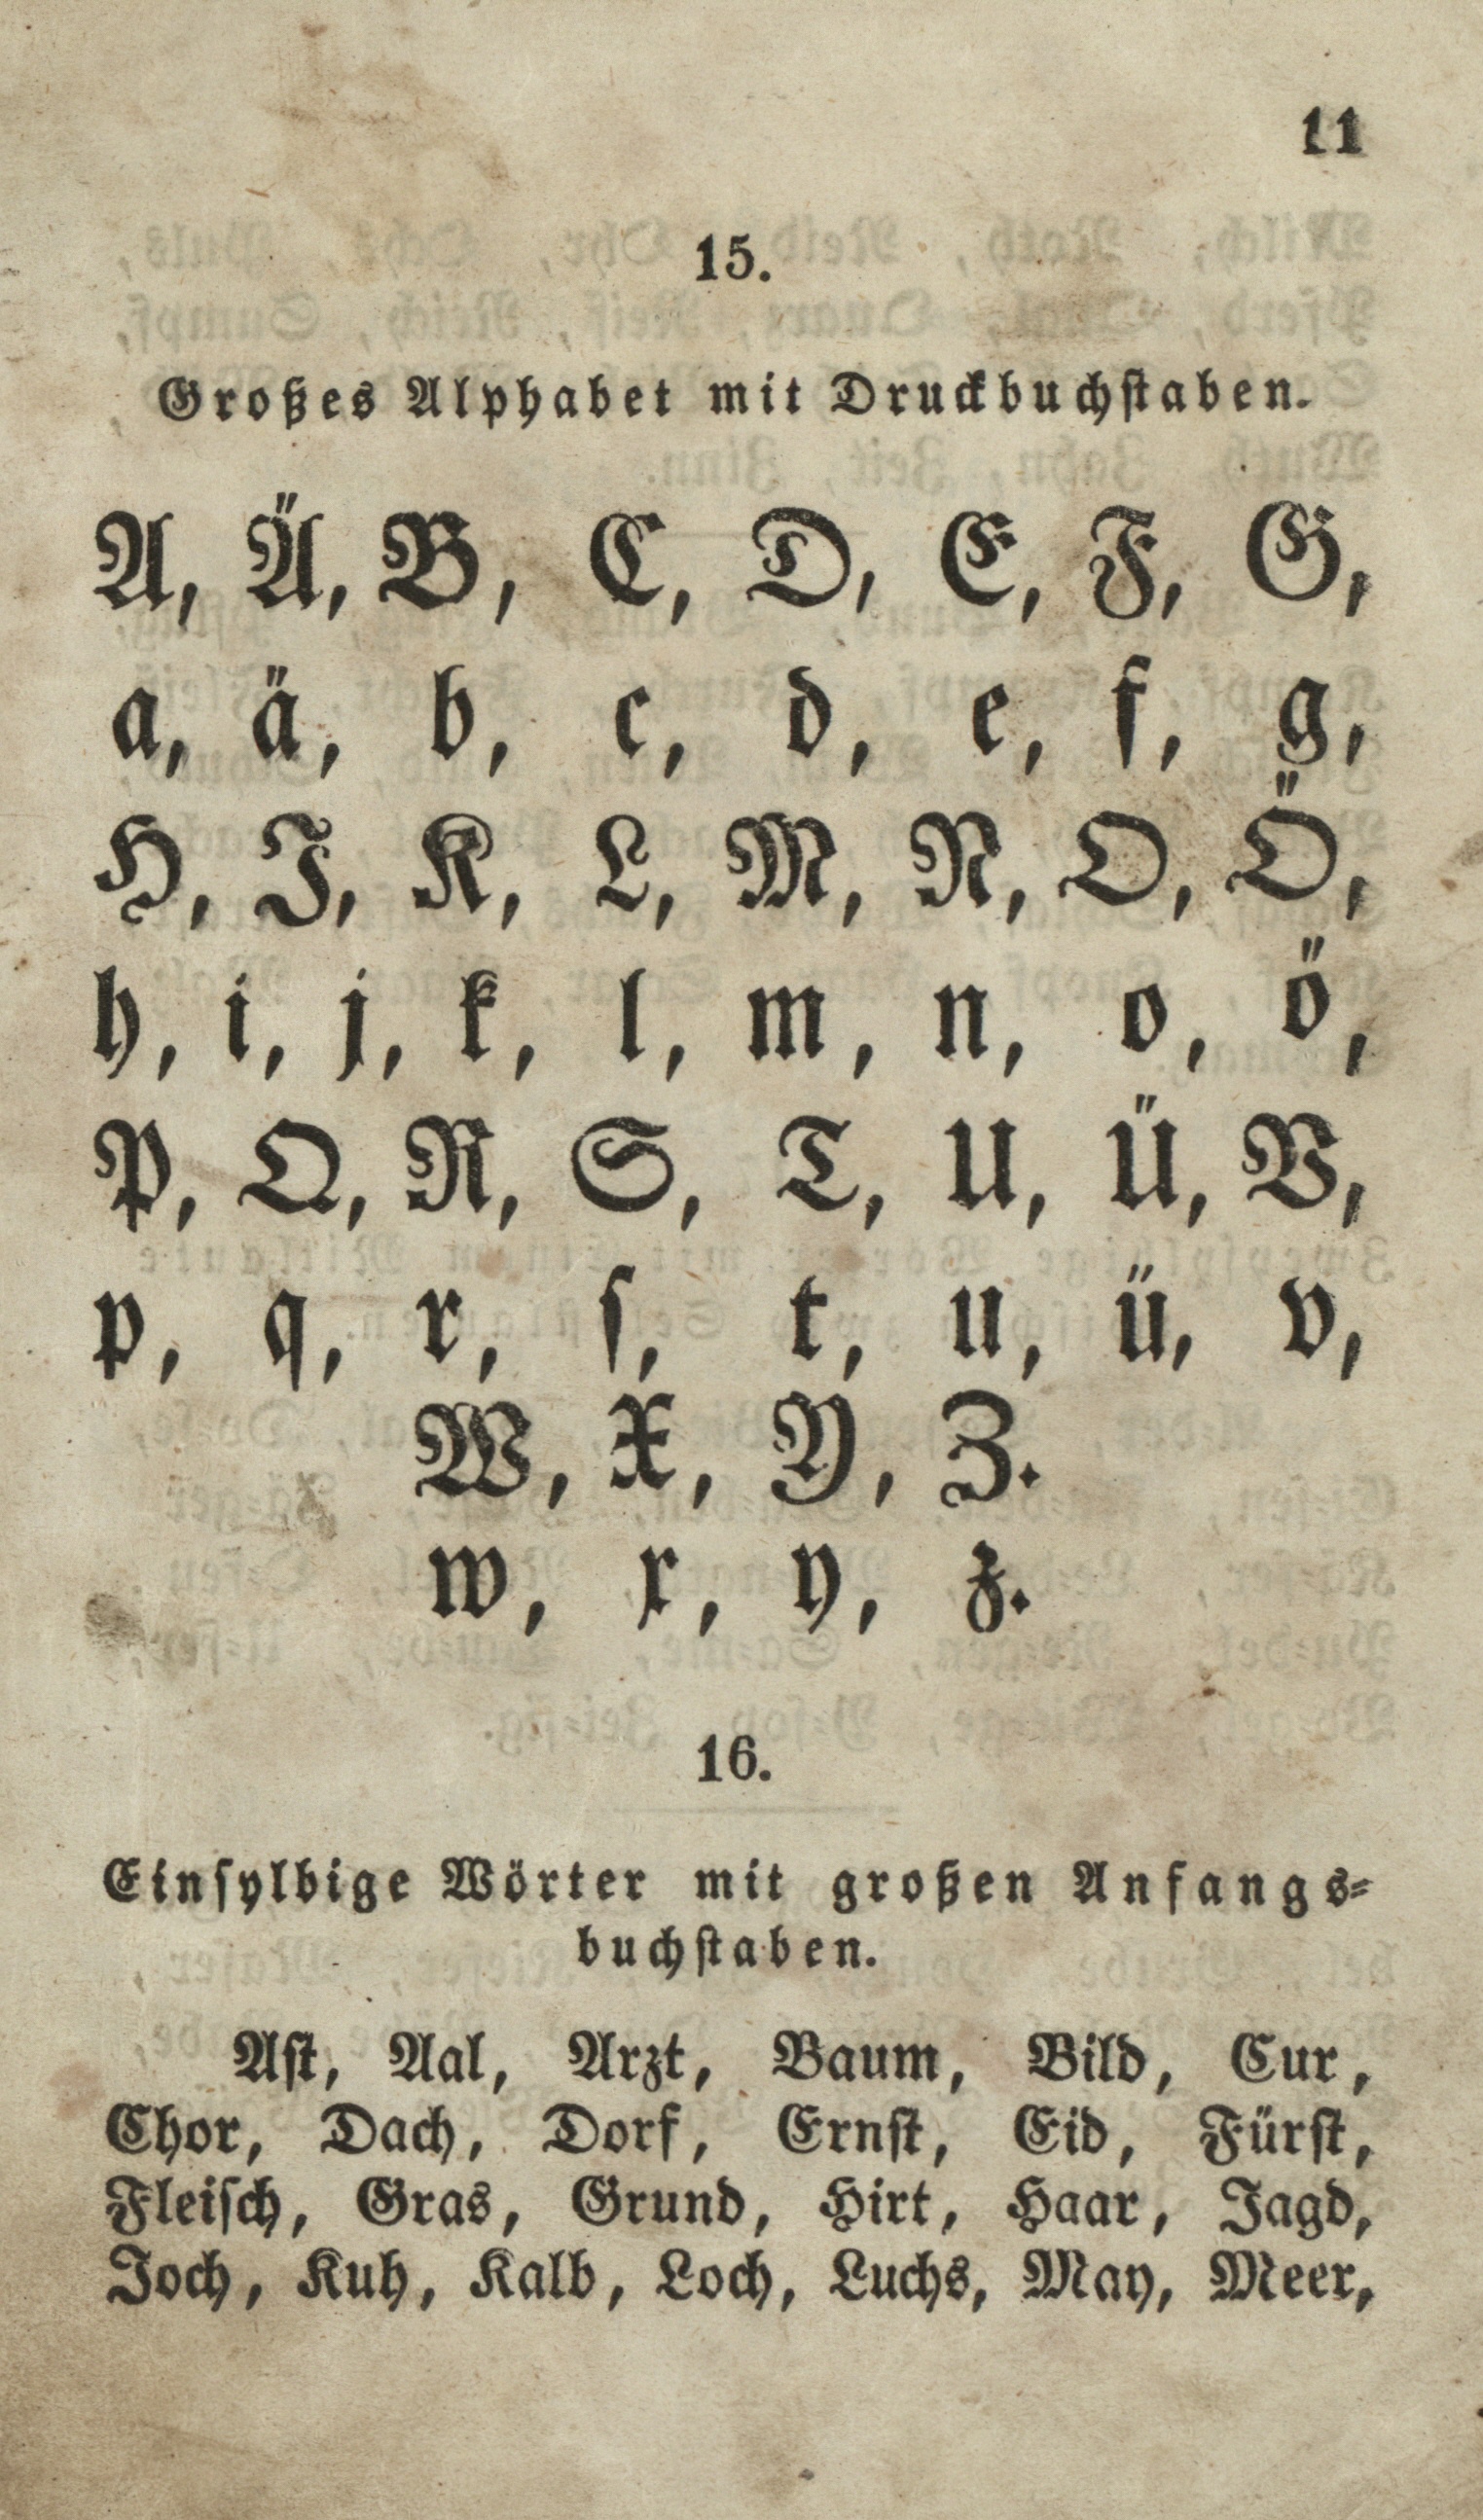 11
15.
Großes Alphabet mit Druckbuchſtaben.
A, Ä, B, C, D, E, F, G,
a, ä, b, c, d, e, f, g,
H, I, K, L, M, N, O, Ö,
h, i, j, k, l, m, n, o, ö,
P, Q, R, S, T, U, Ü, V,
p, q, r, ſ, t, u, ü, v,
W, X, Y, Z.
w, x, y, z.
16.
Einſylbige Wörter mit großen Anfangs⸗
buchſtaben.
Aſt, Aal, Arzt, Baum, Bild, Cur,
Chor, Dach, Dorf, Ernſt, Eid, Fürſt,
Fleiſch, Gras, Grund, Hirt, Haar, Jagd,
Joch, Kuh, Kalb, Loch, Luchs, May, Meer,